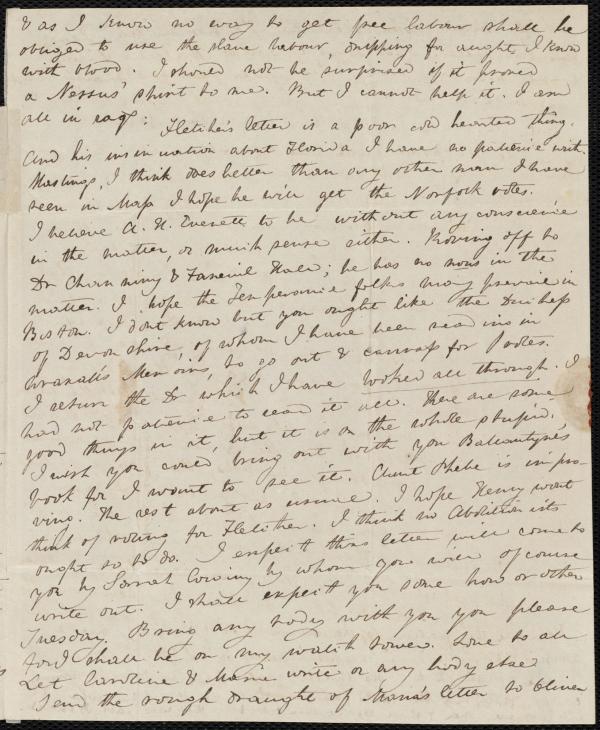 & as I know no way to get free labour shall be
obliged to use the slave labour, dripping for aught I know
with blood. I should not be surprised if it proved
a Nessus' shirt to me. But I cannot help it. I am
all in rags: Fletcher's letter is a poor cold hearted thing.
And his insinuation about Florida I have no patience with.
Hastings, I think does better than any other man I have
seen in Mass I hope he will get the Norfolk votes.
I believe A. H. Everett to be without any conscience
in the matter, or much sense either. Roving off to
Dr Channing & Faneuil Hall; he has no in the
matter. I hope the Temperance folks may prevail in
Boston. I dont know but you ought like the Duchess
of Devonshire, of whom I have been reading in
Wraxall's Memoirs, to go out & canvass for votes.
I return the Dr which I have looked all through. I
had not patience to read it all. There are some
good things in it, but it is on the whole stupid.
I wish you could bring out with you Ballantyne's
book for I want to see it. Aunt Phebe is impro-
ving. The rest about as usual. I hope Henry wont
think of voting for Fletcher. I think no Abolitionists
ought so to do. I expect this letter will come to
you by Sarah by whom you will of course
write out. I shall expect you some how or other
Tuesday. Bring any body with you you please
for I shall be on my watch tower. Love to all
Let Caroline & write or any body else
Send the rough draught of Maria's letter to Oliver